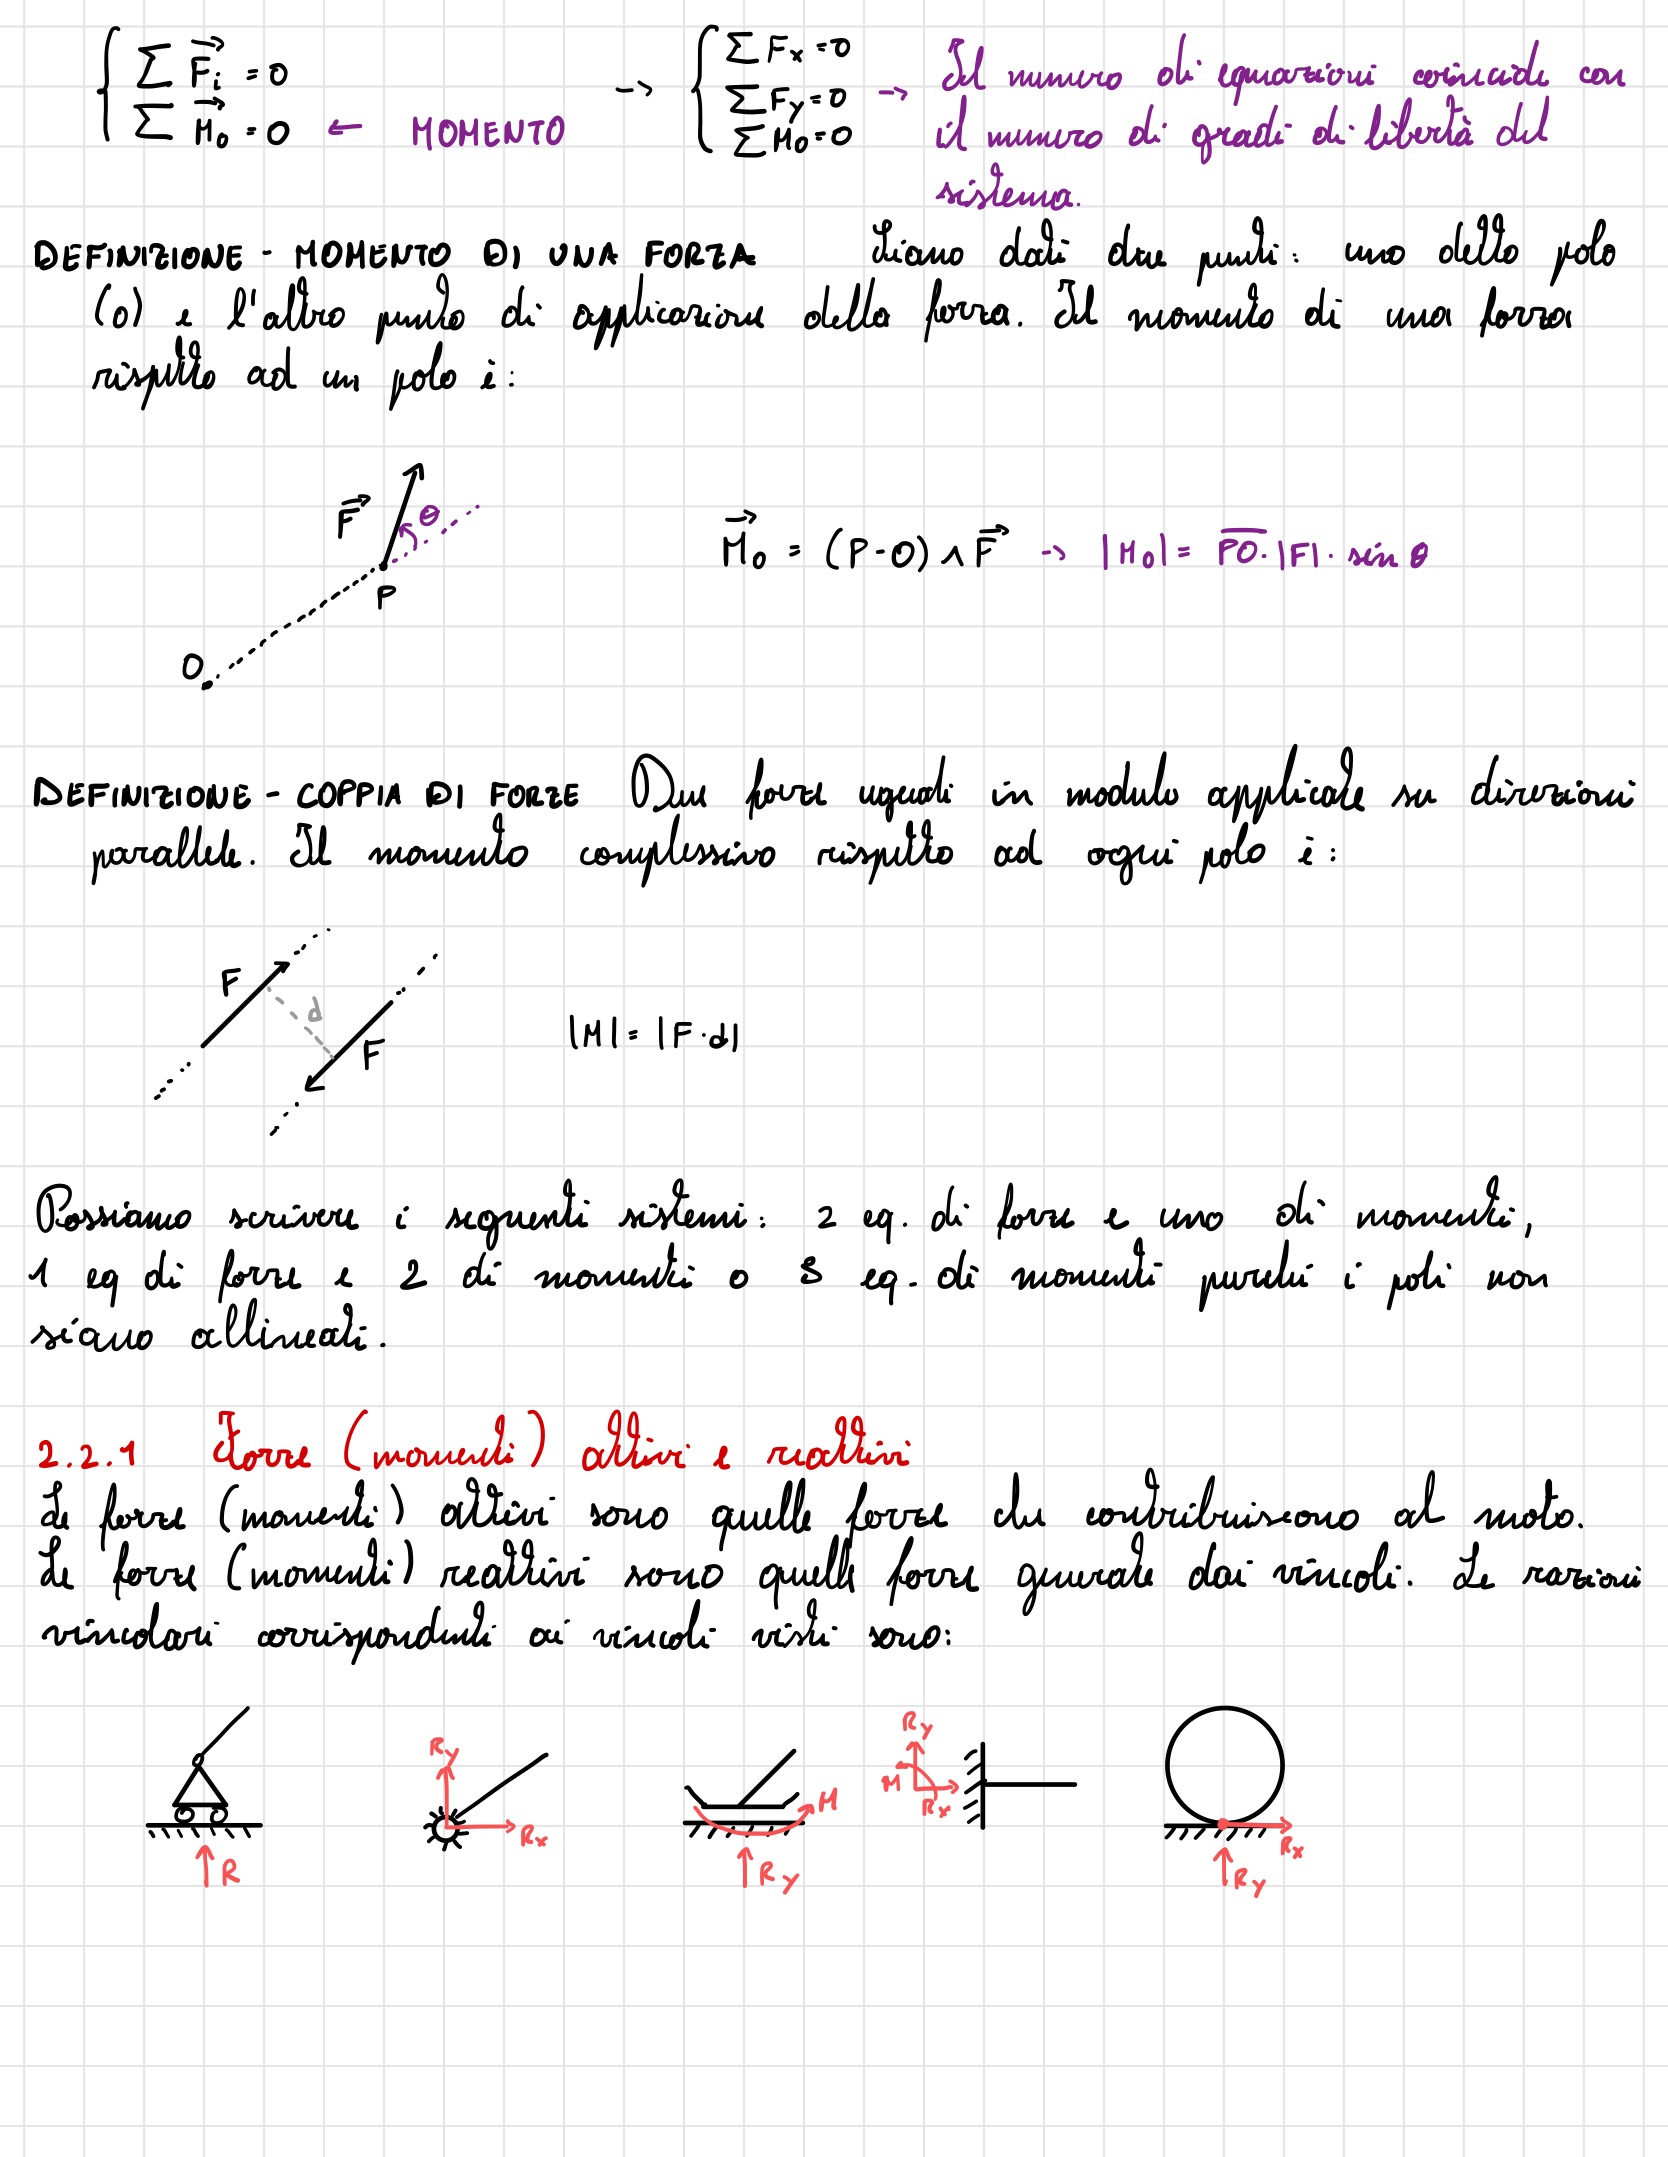 { ∑ F⃗i = 0 -> { ∑ Fx = 0
∑ M⃗o = 0 ← MOMENTO ∑ Fy = 0 -> Il numero di equazioni coincide con
∑ Mo = 0 il numero di gradi di libertà del
sistema.
DEFINIZIONE - MOMENTO DI UNA FORZA Siano dati due punti: uno detto polo
(O) e l'altro punto di applicazione della forza. Il momento di una forza
rispetto ad un polo è:
F⃗ θ
P
O
M⃗o = (P-O) ∧ F⃗ -> |Mo| = PO · |F| · sin θ
DEFINIZIONE - COPPIA DI FORZE Due forze uguali in modulo applicate su direzioni
parallele. Il momento complessivo rispetto ad ogni polo è:
F d F
|M| = |F·d|
Possiamo scrivere i seguenti sistemi: 2 eq. di forze e uno di momenti,
1 eq di forze e 2 di momenti o 3 eq. di momenti purché i poli non
siano allineati.
2.2.1 Forze (momenti) attivi e reattivi
Le forze (momenti) attivi sono quelle forze che contribuiscono al moto.
Le forze (momenti) reattivi sono quelle forze generate dai vincoli. Le razioni
vincolari corrispondenti ai vincoli visti sono:
R
Ry Rx
M Ry
Ry M Rx
Rx Ry